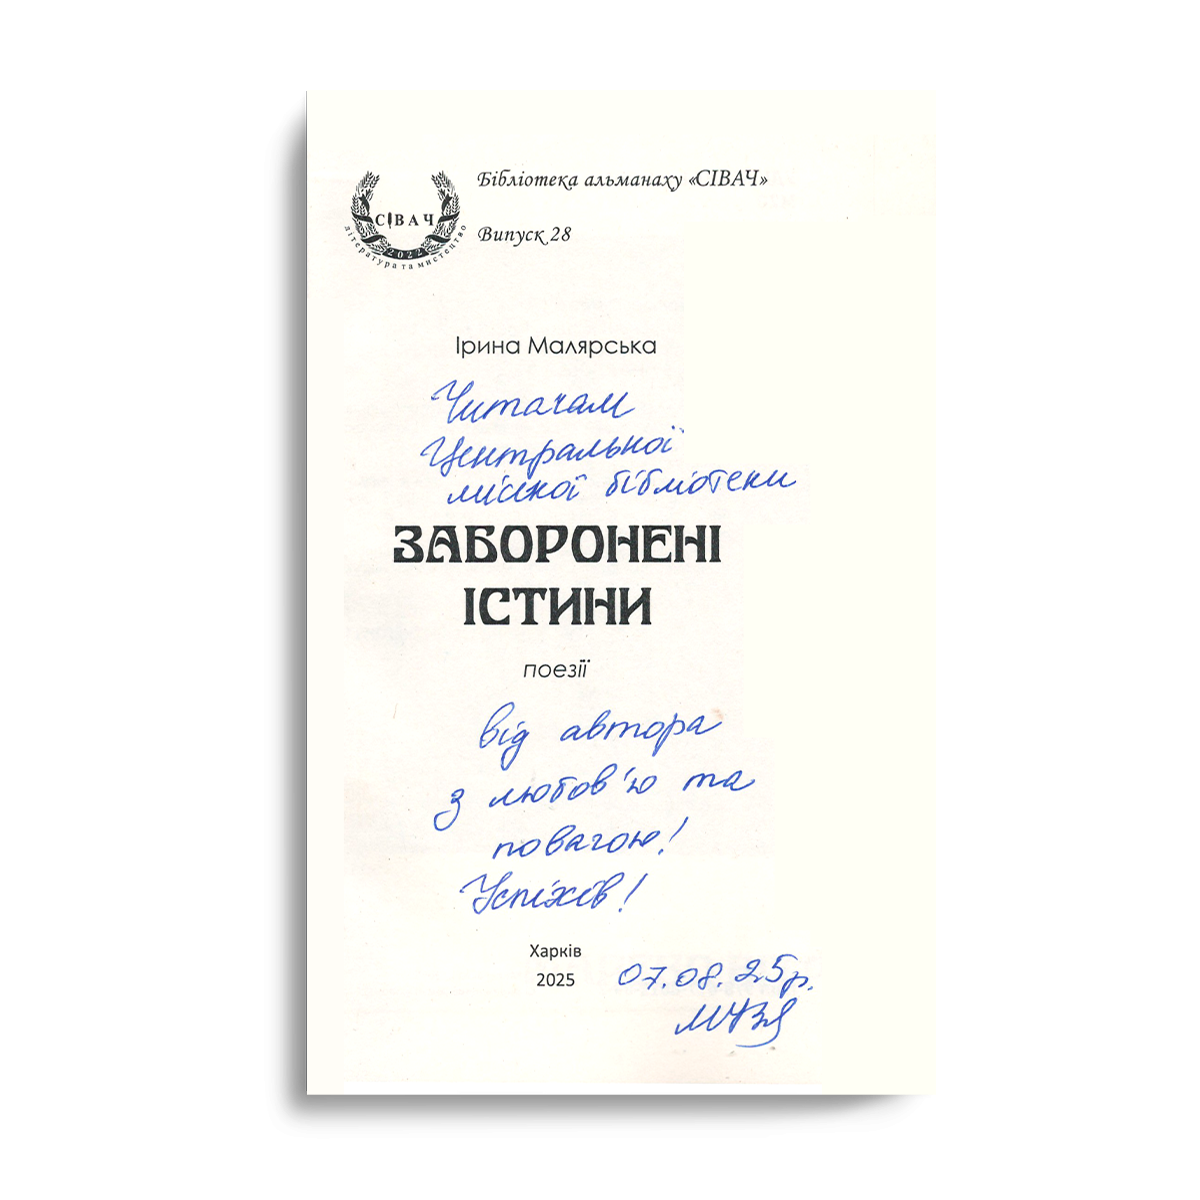 Бібліотека альманаху «СІВАЧ»
СІВАЧ
2022
література та мистецтво
Випуск 28
Ірина Малярська
Читачам
Центральної
міської бібліотеки
ЗАБОРОНЕНІ
ІСТИНИ
поезії
від автора
з любов'ю та
повагою!
Успіхів!
Харків
2025
07.08.25р.